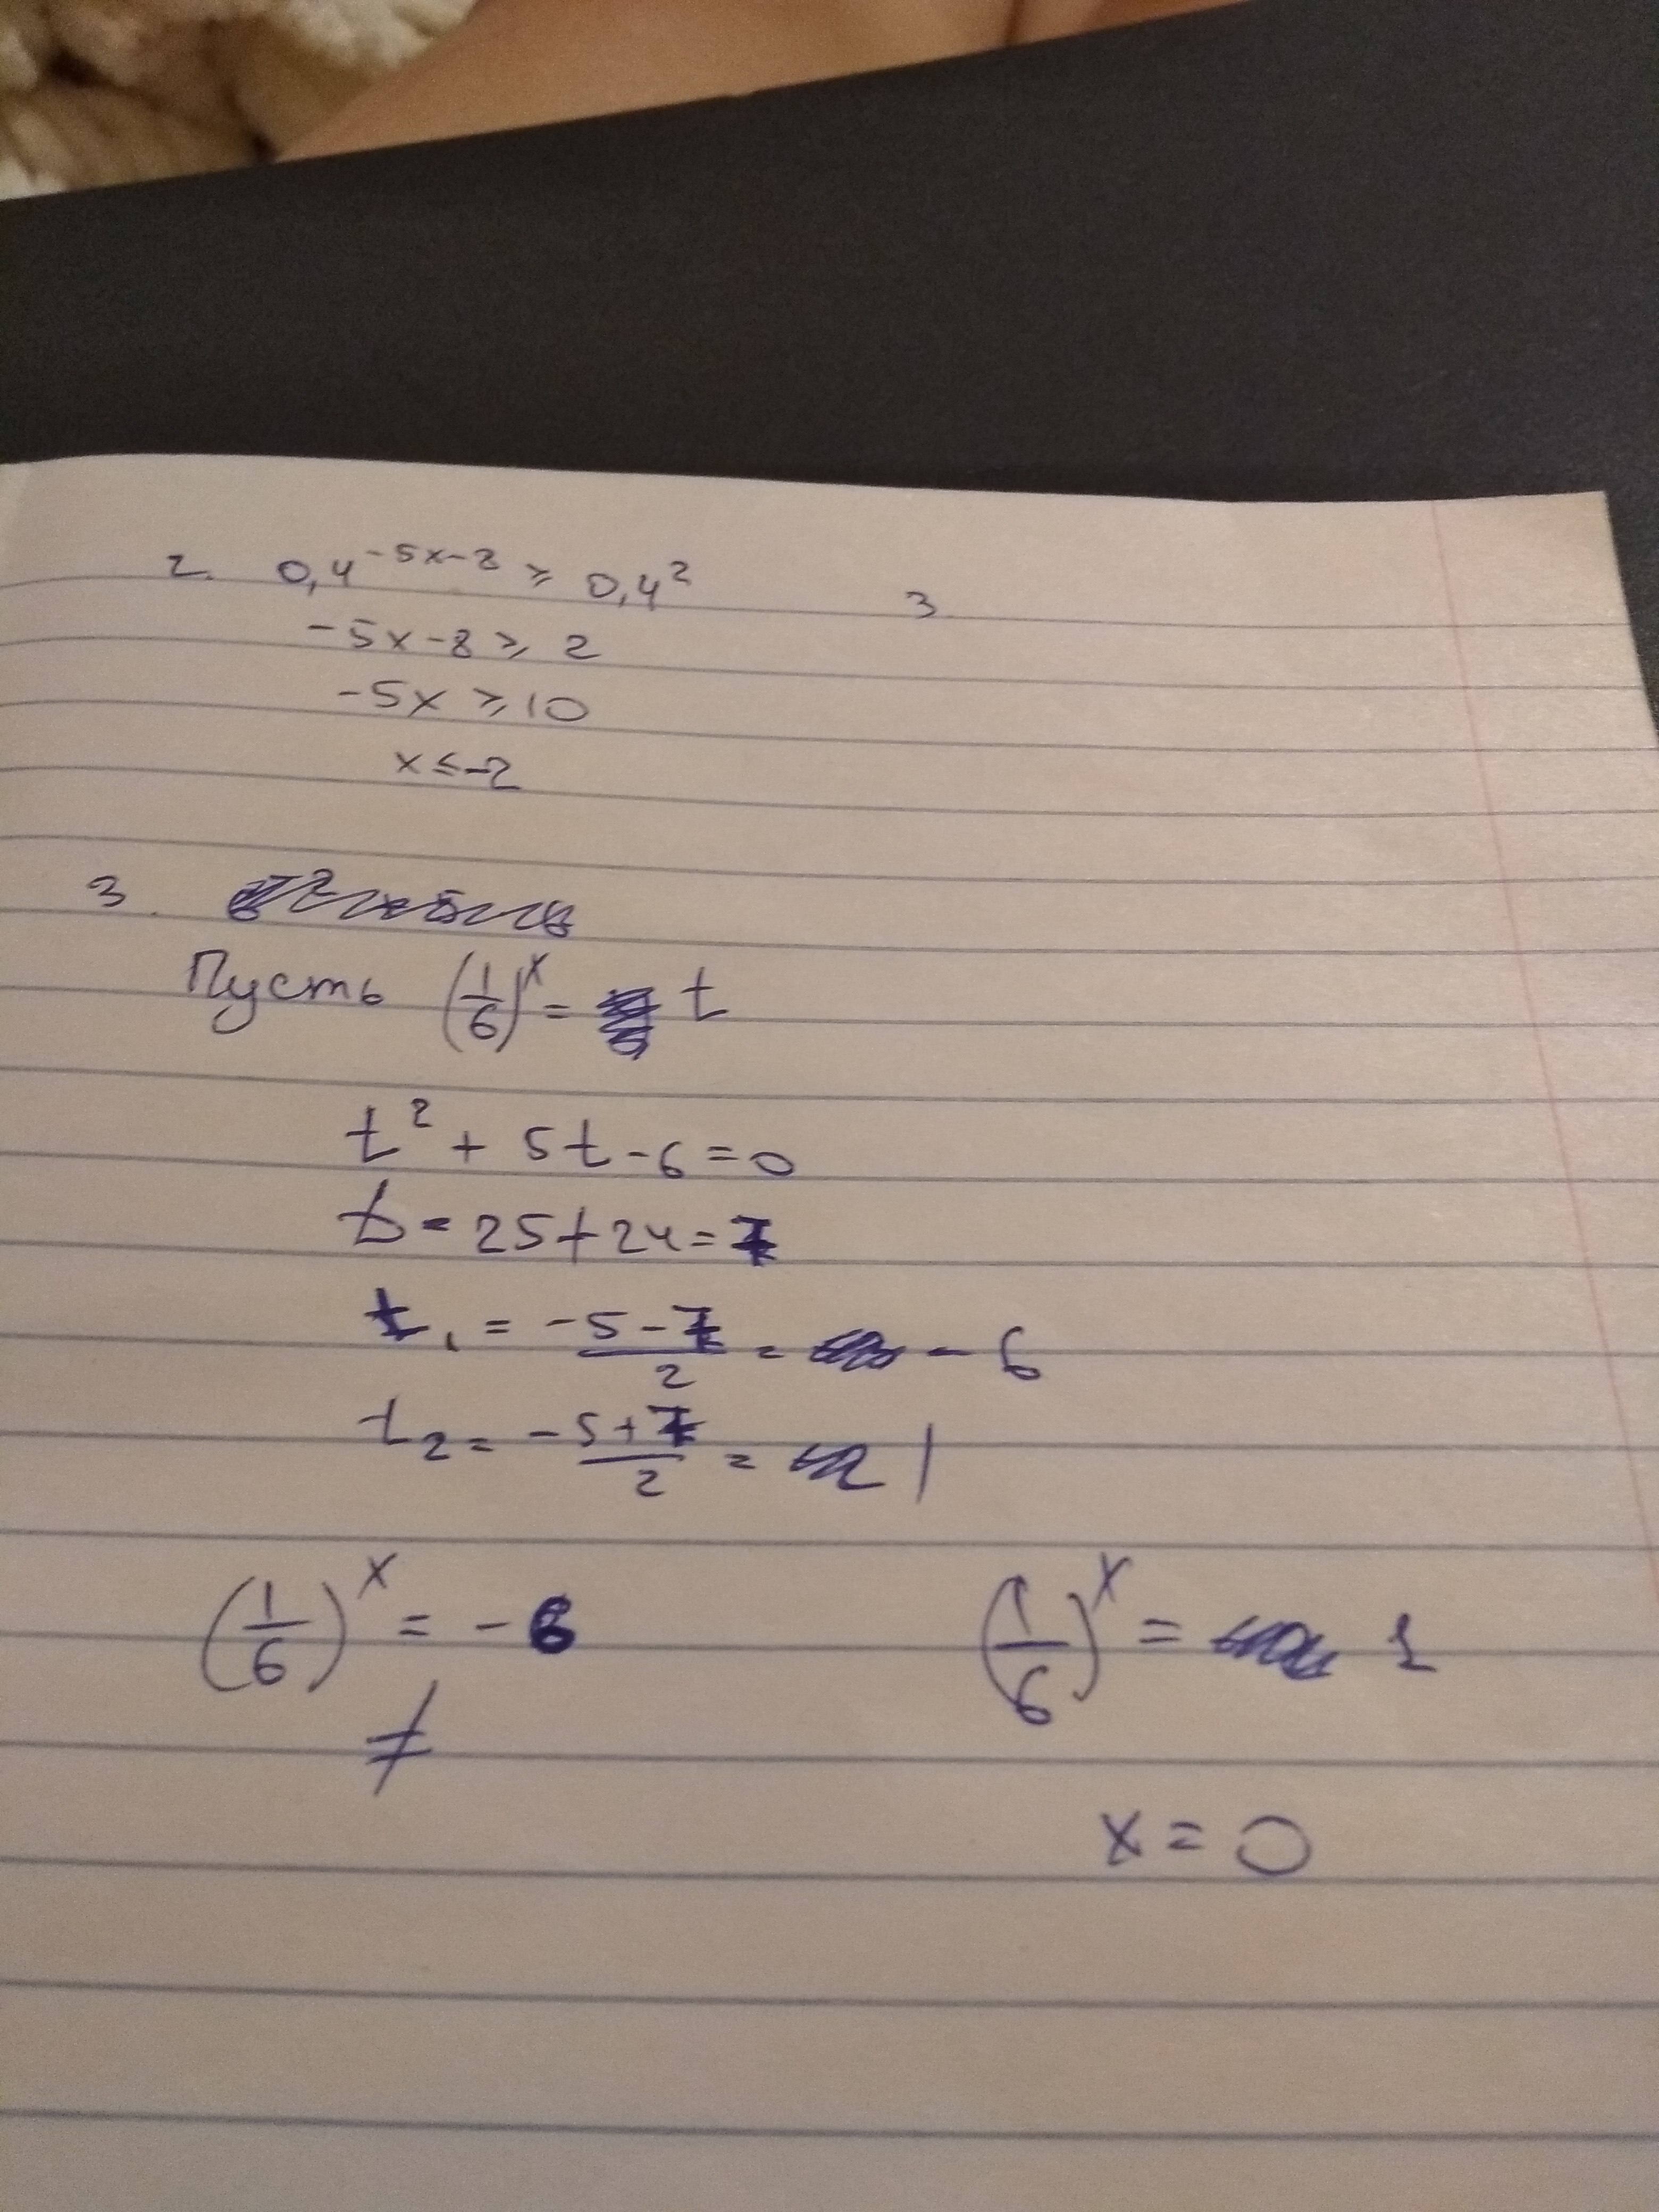 2. 0,4^(-5x-8) ⩾ 0,4²
3
-5x-8 ⩾ 2
-5x ⩾ 10
x ⩽ -2
3.
Пусть (1/6)^x = t
t² + 5t - 6 = 0
D = 25 + 24 = 7
t₁ = (-5-7)/2 = -6
t₂ = (-5+7)/2 = 1
(1/6)^x = -6 (1/6)^x = 1
≠
x = 0